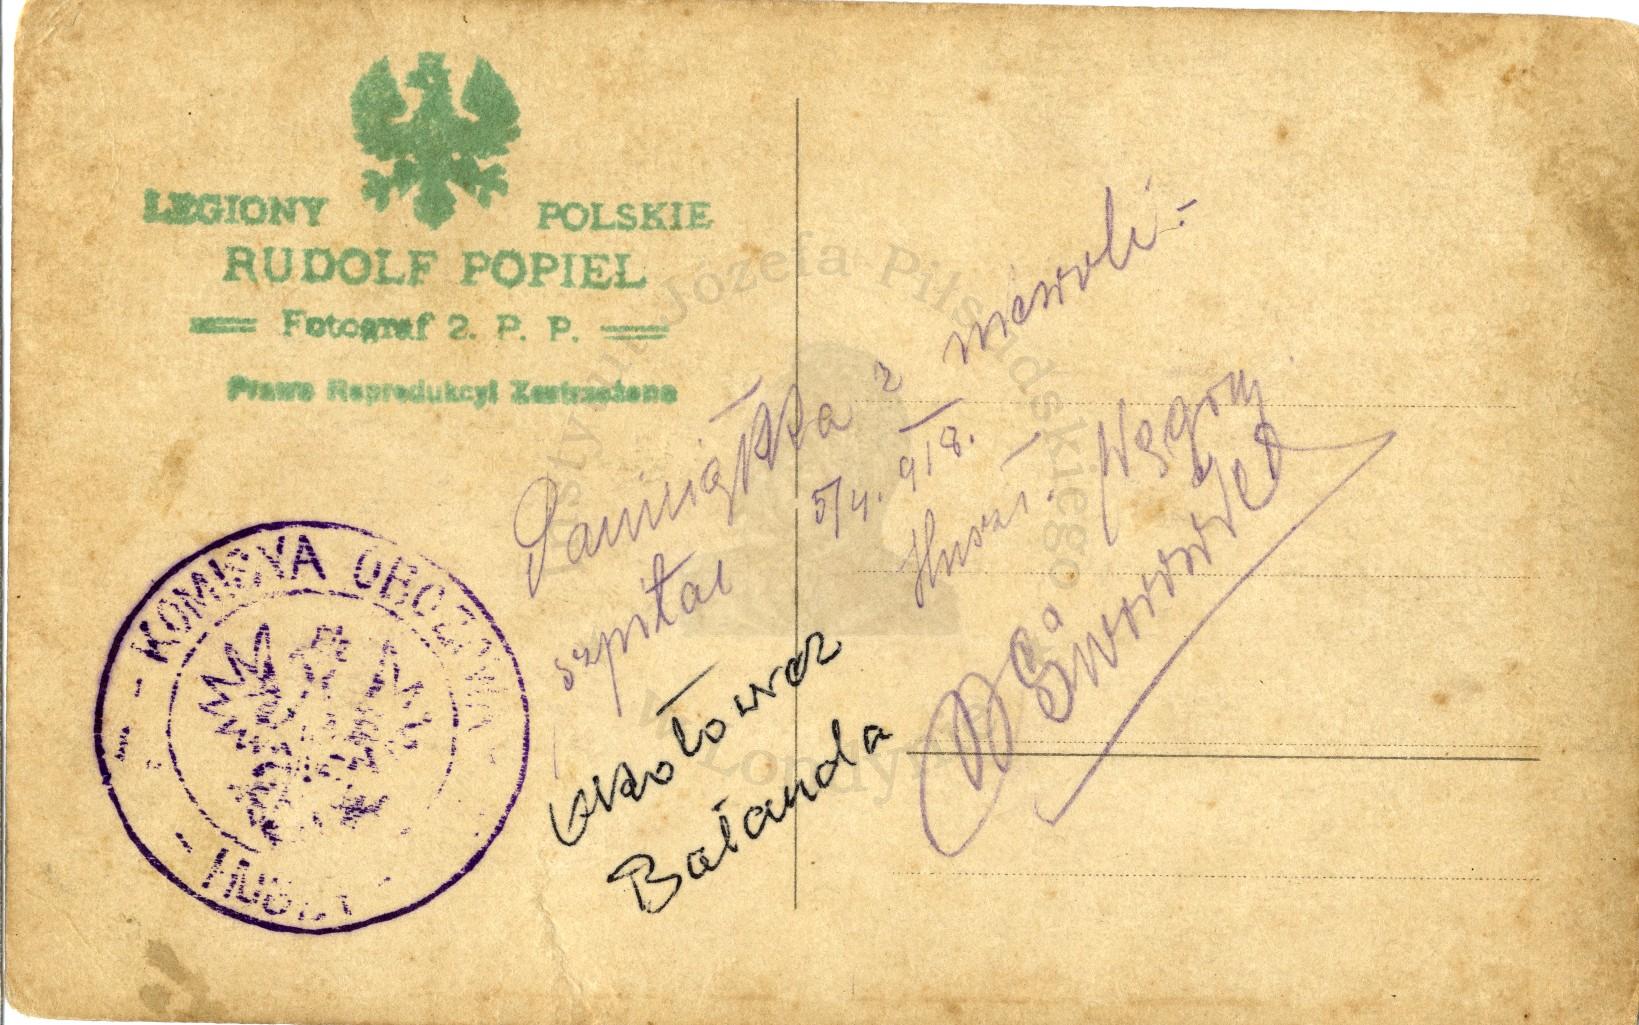 LEGIONY POLSKIE
RUDOLF POPIEL
Fotograf 2. P. P.
Prawo Reprodukcyi Zastrzeżone
Pamiątka z niewoli -
szpital 5/4. 918.
Huszt. Węgry
Bałanda
- KOMISYA OBOZOWA -
- HUSZT -
Instytut Józefa Piłsudskiego
w Londynie